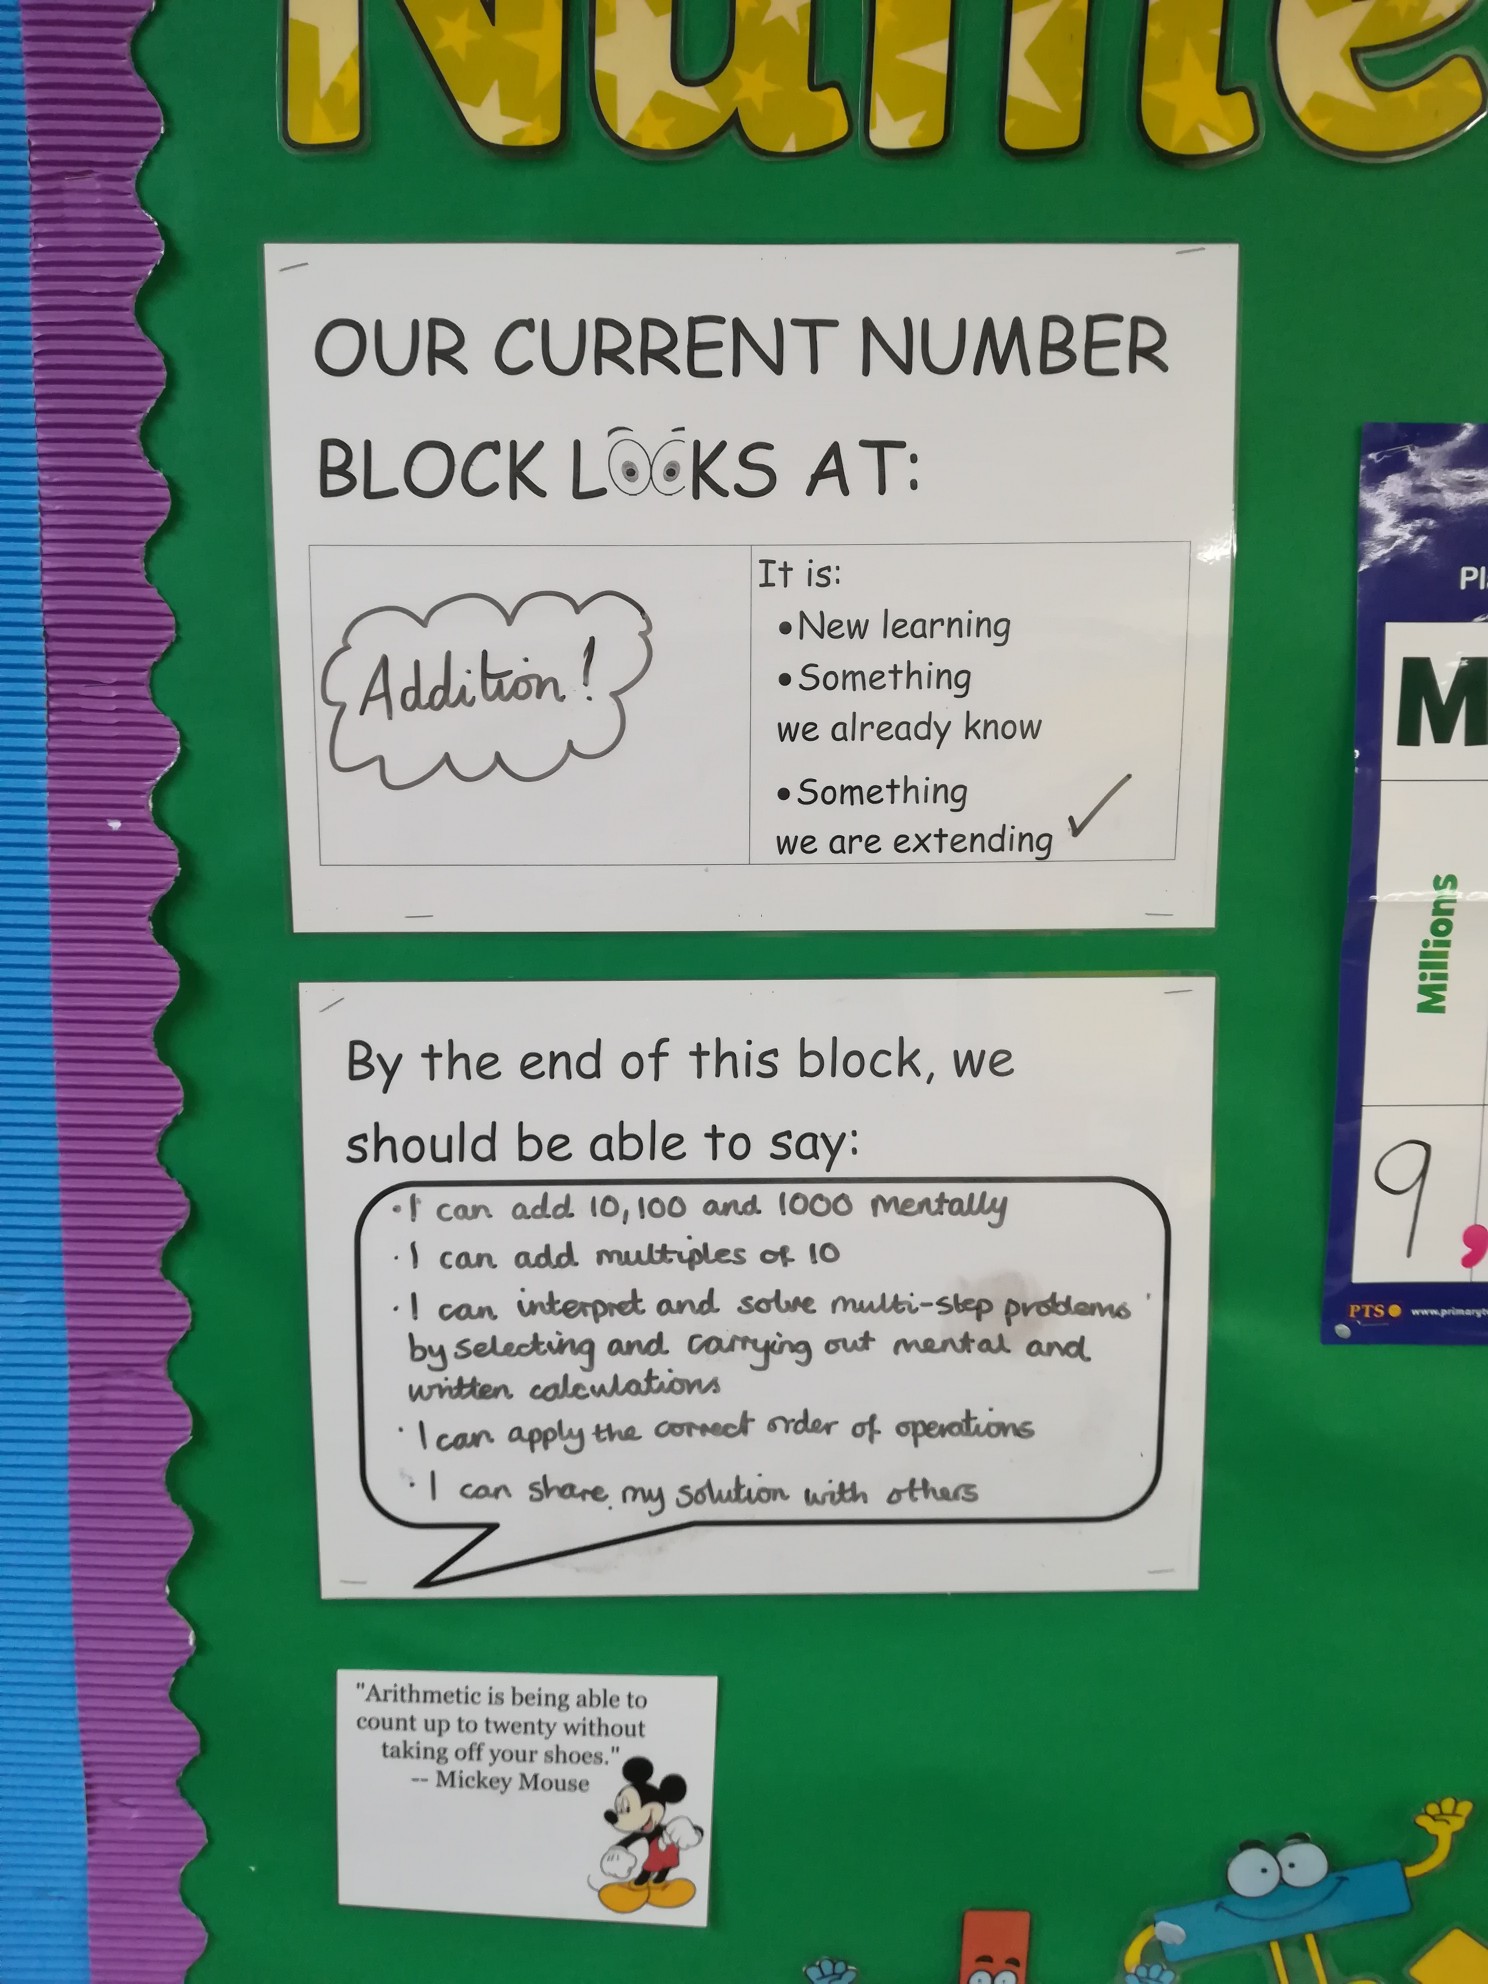 OUR CURRENT NUMBER
BLOCK LOOKS AT:
Addition!
It is:
•New learning
•Something
we already know
•Something
we are extending ✓
By the end of this block, we
should be able to say:
·I can add 10, 100 and 1000 mentally
·I can add multiples of 10
·I can interpret and solve multi-step problems
by selecting and carrying out mental and
written calculations
·I can apply the correct order of operations
·I can share my solution with others
"Arithmetic is being able to
count up to twenty without
taking off your shoes."
-- Mickey Mouse
M
Millions
9,
PTS